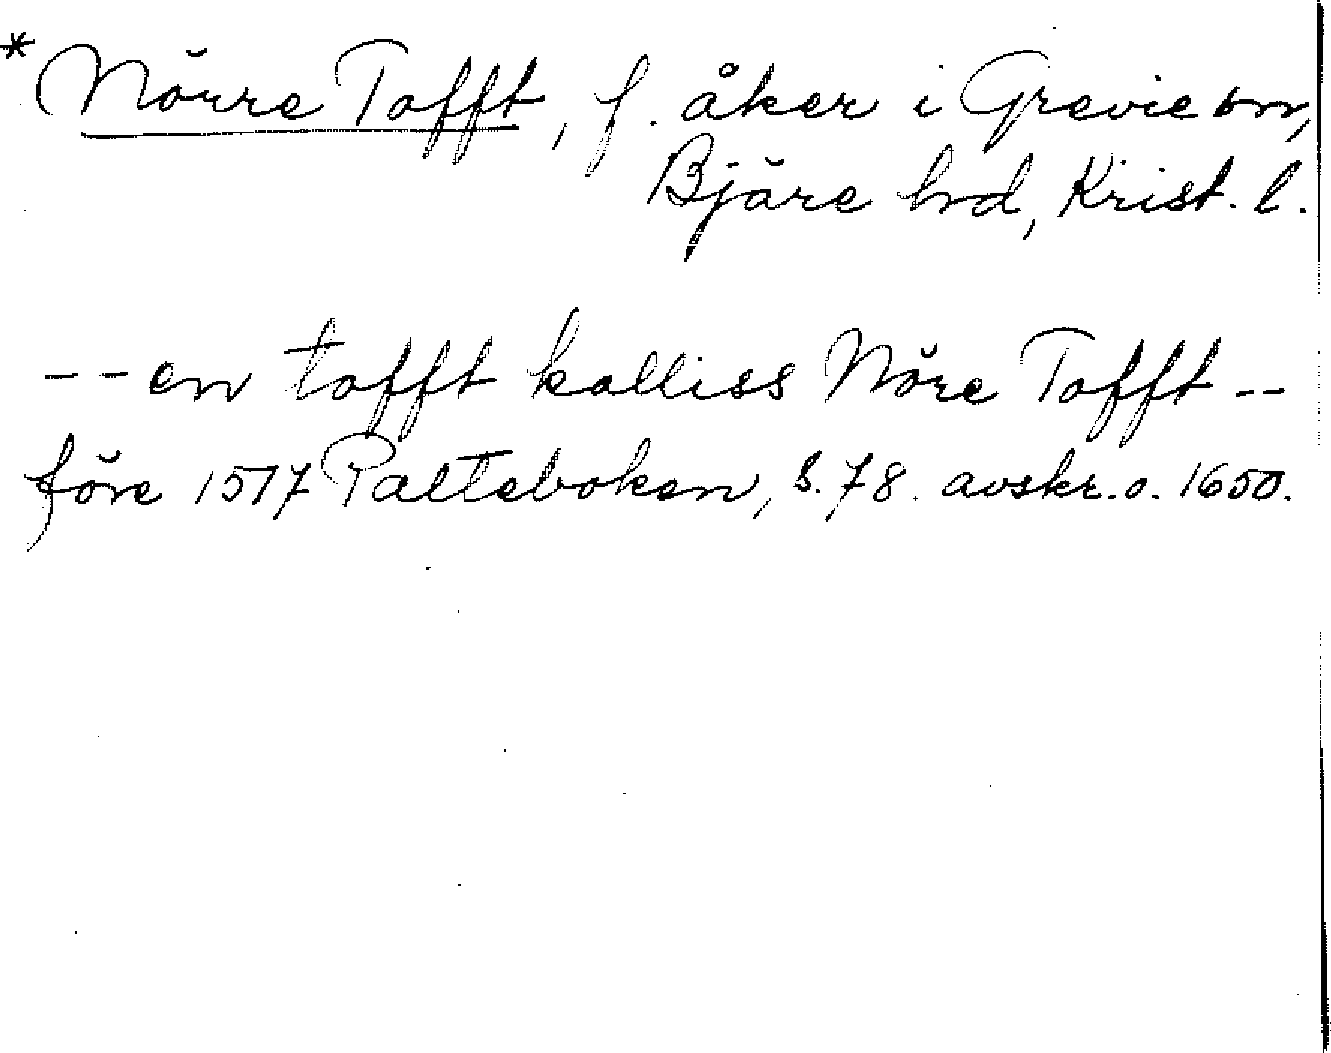 *Nörre Tofft, f. åker i Grevie sn,
Bjäre hd, Krist. l.
-- en tofft kalliss Nöre Tofft --
före 1517 Palteboken, s. 78. avskr. o. 1650.